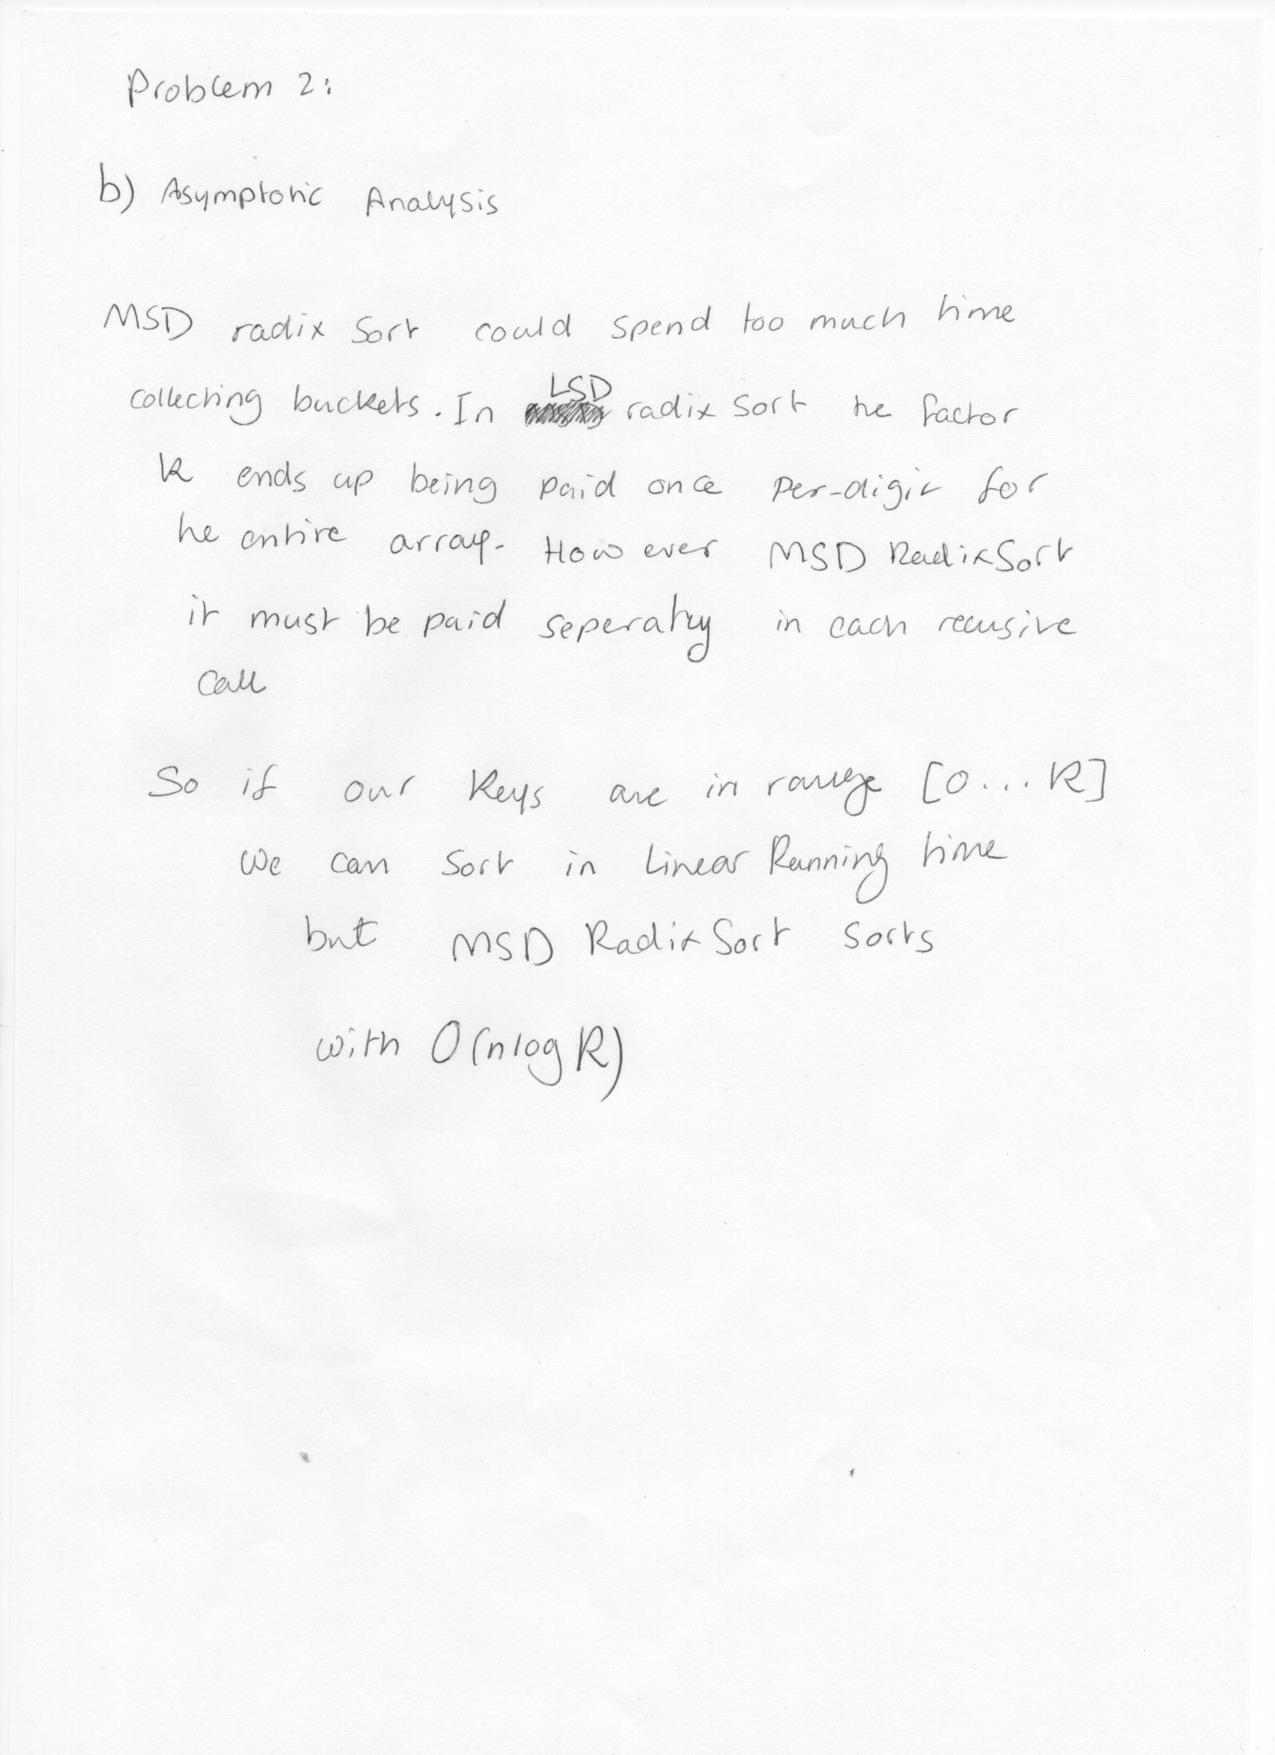 Problem 2:
b) Asymptotic Analysis
MSD radix Sort could spend too much time
collecting buckets. In LSD radix Sort the factor
k ends up being paid once per-digit for
the entire array. However MSD RadixSort
it must be paid seperatly in each recusive
call
So if our keys are in range [0...k]
we can sort in Linear Running time
but MSD RadixSort sorts
with O(nlogk)